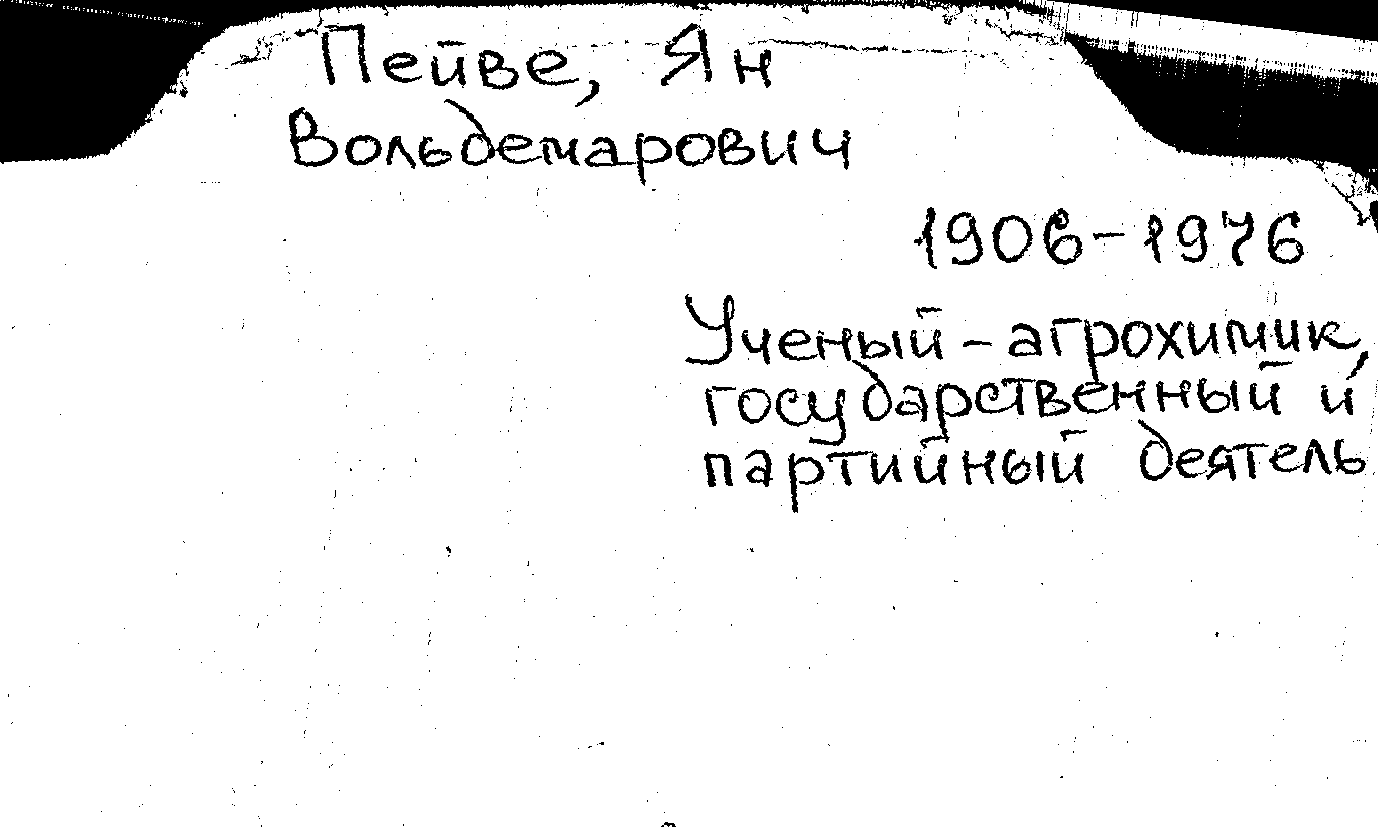 Пейве, Ян
Вольдемарович
1906-1976
Ученый-агрохимик,
государственный и
партийный деятель